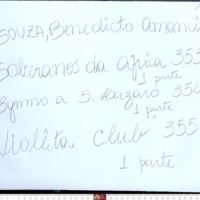 SOUZA, Benedicto Amanci
Soberanos da Africa 353
1 parte
Hymno a S. Lazaro 354
1 parte
Violeta Club 355
1 parte